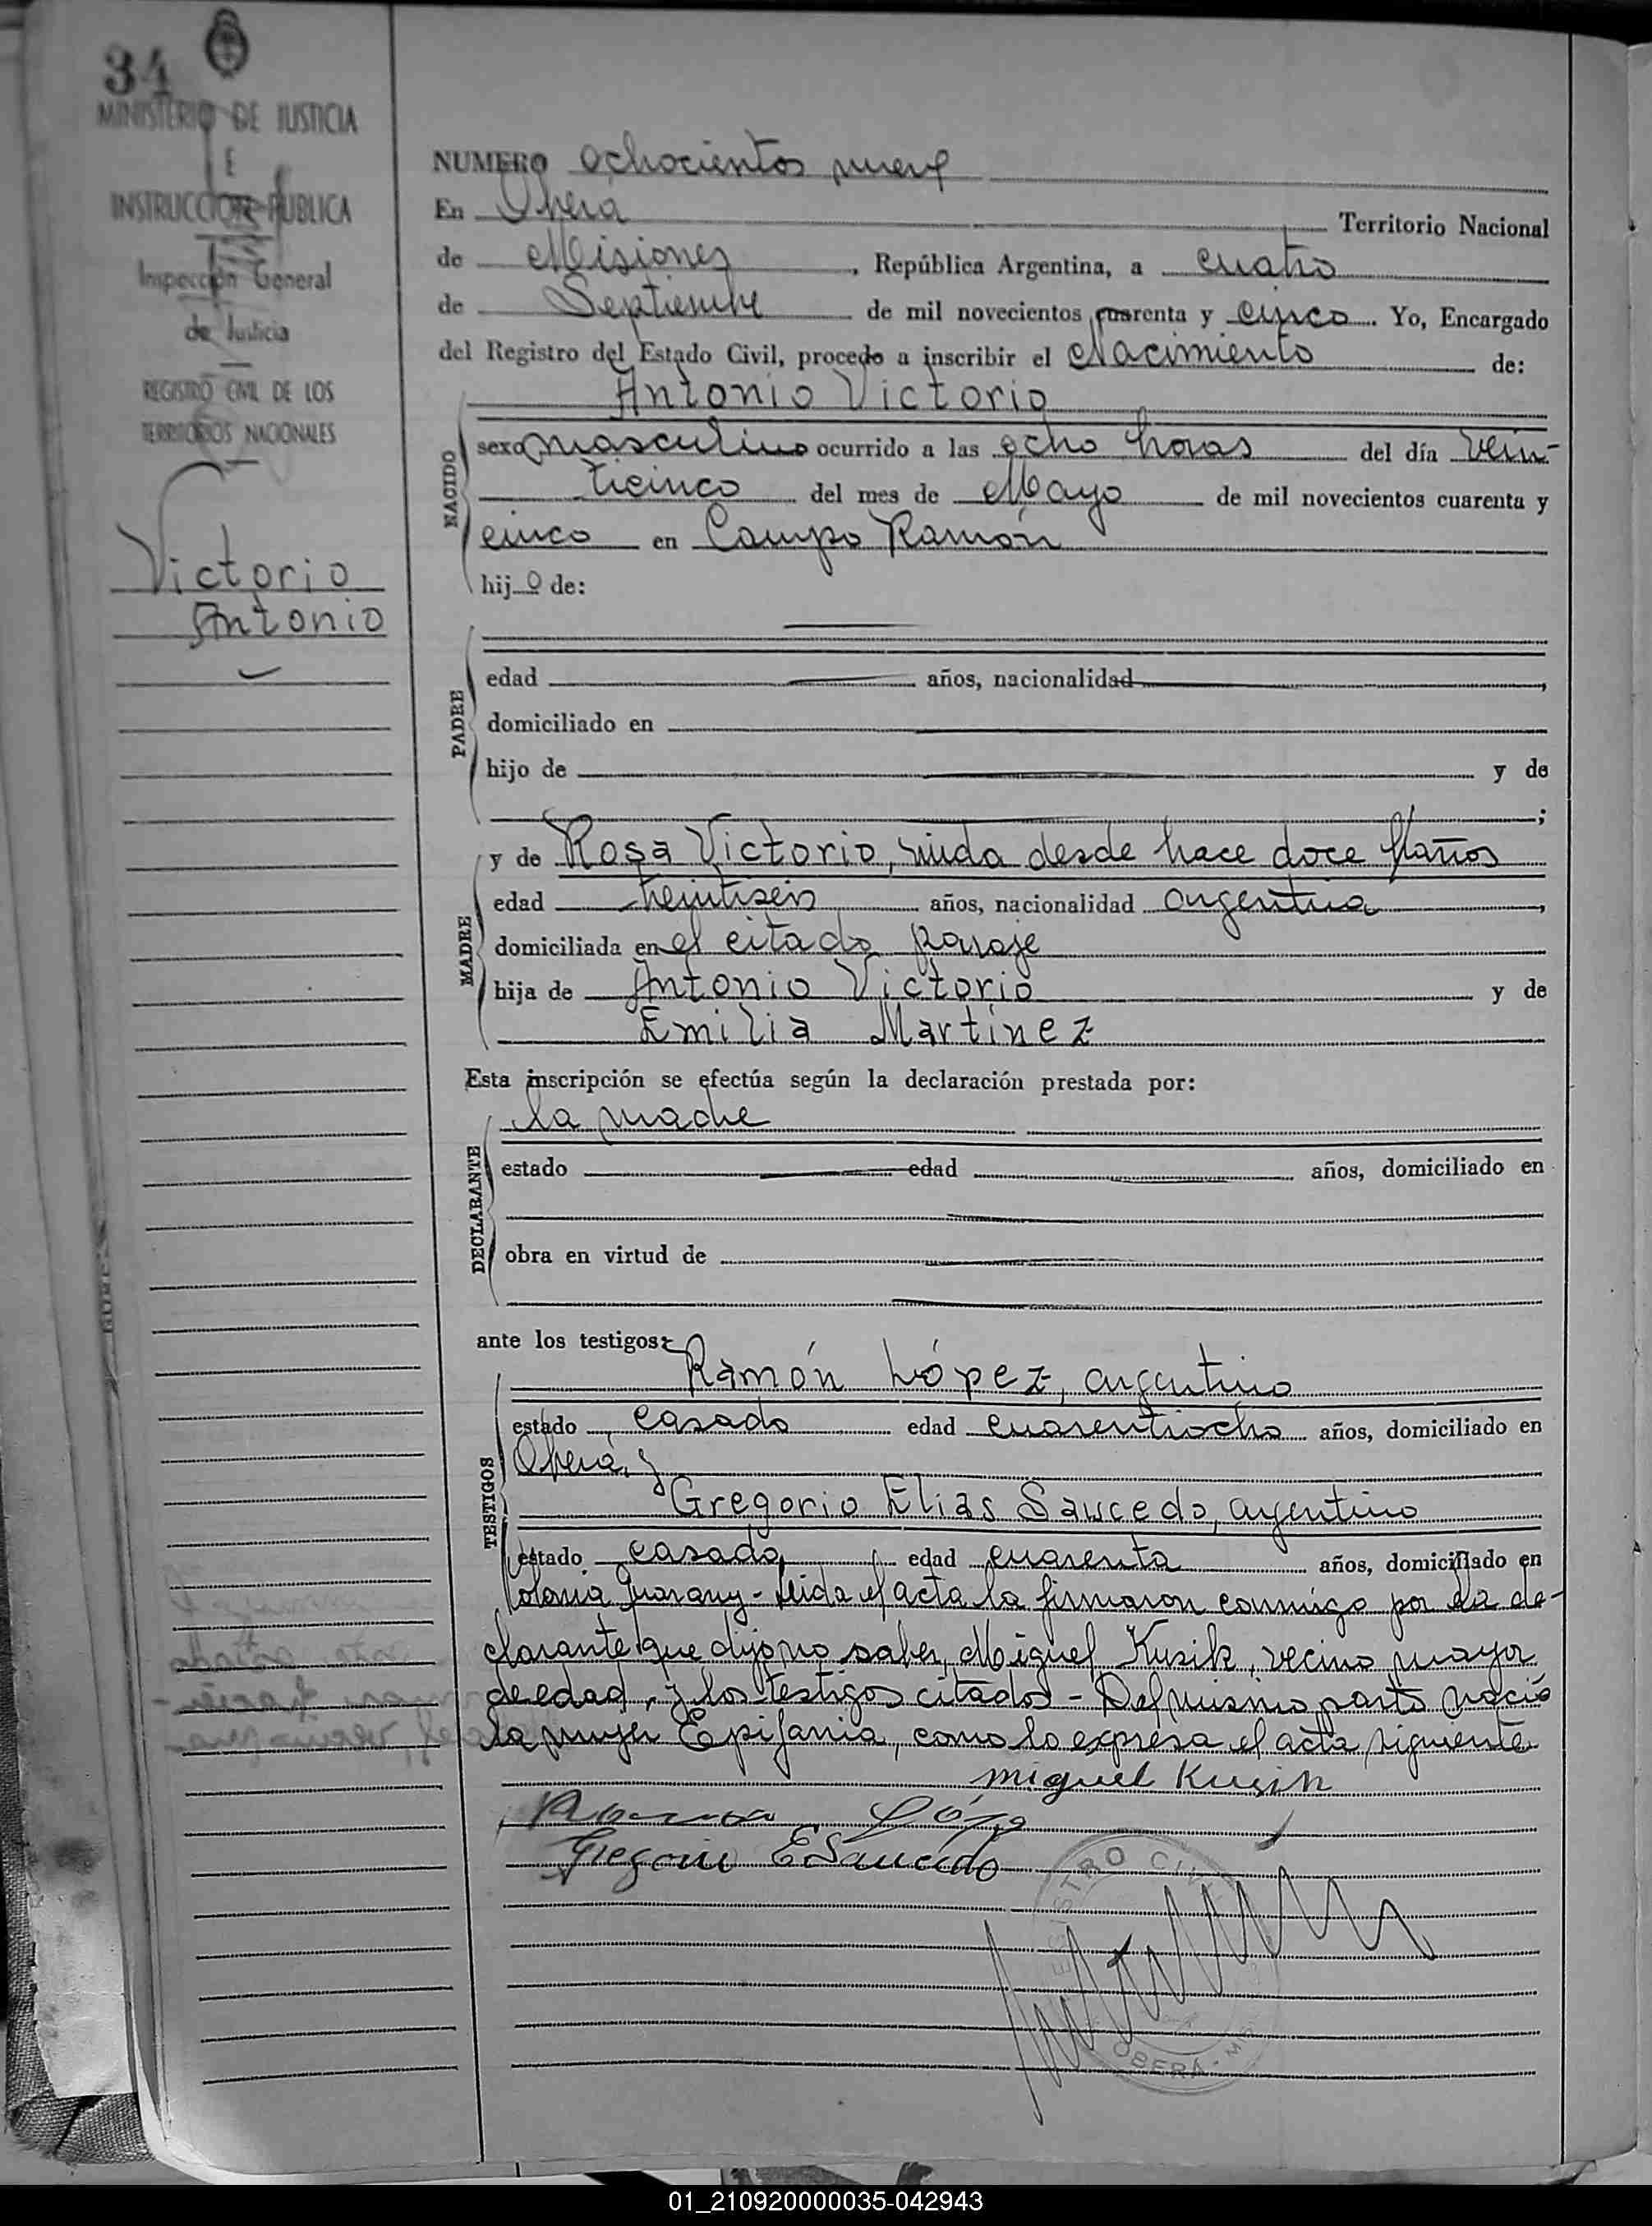 34
MINISTERIO DE JUSTICIA
E
INSTRUCCION PUBLICA
Inspección General
de Justicia
REGISTRO CIVIL DE LOS
TERRITORIOS NACIONALES
Victorio
Antonio
NUMERO Ochocientos nueve
En Oberá Territorio Nacional
de Misiones, República Argentina, a cuatro
de Septiembre de mil novecientos cuarenta y cinco. Yo, Encargado
del Registro del Estado Civil, procedo a inscribir el Nacimiento de:
Antonio Victorio
NACIDO
sexo masculino ocurrido a las ocho horas del día vein-
ticinco del mes de Mayo de mil novecientos cuarenta y
cinco en Campo Ramón
hijo de:
PADRE
edad años, nacionalidad,
domiciliado en
hijo de y de
;
MADRE
y de Rosa Victorio, viuda desde hace doce años
edad treintiseis años, nacionalidad argentina,
domiciliada en el citado paraje
hija de Antonio Victorio y de
Emilia Martínez
Esta inscripción se efectúa según la declaración prestada por:
la madre
DECLARANTE
estado edad años, domiciliado en
obra en virtud de
ante los testigos:
Ramón López, argentino
TESTIGOS
estado casado edad cuarentiocho años, domiciliado en
Oberá, y
Gregorio Elias Saucedo, argentino
estado casado edad cuarenta años, domiciliado en
Colonia Guarany - Leida el acta la firmaron conmigo por la de-
clarante que dijo no saber, Miguel Kusik, vecino mayor
de edad, y los testigos citados - Del mismo parto nació
la mujer Epifania, como lo expresa el acta siguiente
Miguel Kusik
Ramon López
Gregorio E Saucedo
REGISTRO CIVIL
OBERÁ
01_210920000035-042943